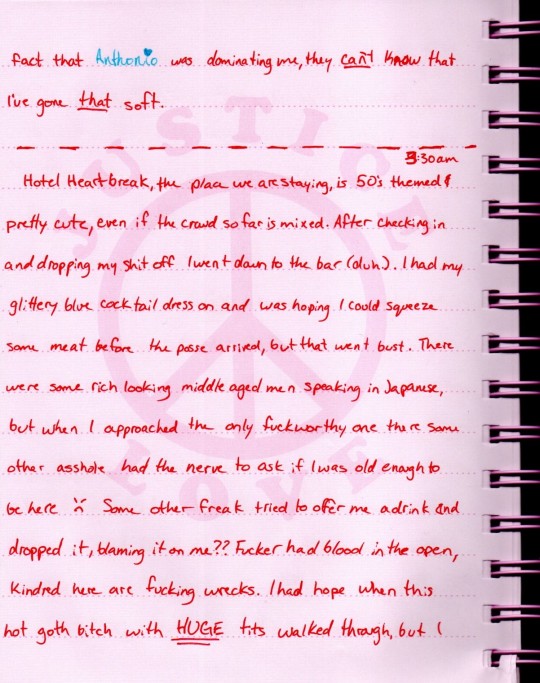 fact that Anthonio was dominating me, they can't know that
I've gone that soft.
3:30am
Hotel Heartbreak, the place we are staying, is 50's themed &
pretty cute, even if the crowd so far is mixed. After checking in
and dropping my shit off I went down to the bar (duh). I had my
glittery blue cocktail dress on and was hoping I could squeeze
some meat before the posse arrived, but that went bust. There
were some rich looking middle aged men speaking in Japanese,
but when I approached the only fuckworthy one there some
other asshole had the nerve to ask if I was old enagh to
be here :( Some other freak tried to offer me a drink and
dropped it, blaming it on me?? Fucker had blood in the open,
kindred here are fucking wrecks. I had hope when this
hot goth bitch with HUGE tits walked through, but I
JUSTICE
LOVE